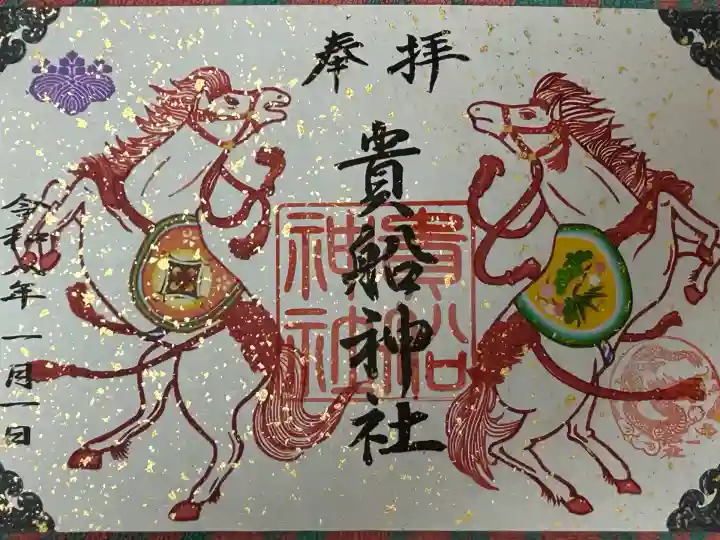 奉拝
貴船神社
貴船
神社
令和八年一月一日